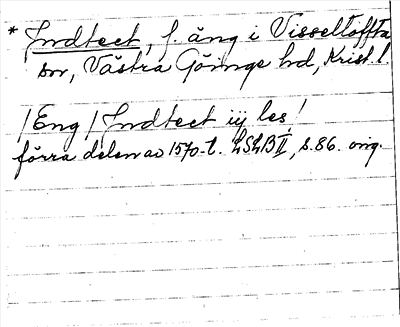 * Indteet, f. äng i Visseltoffta
sn, Västra Göinge hd, Krist. l.
/Eng/ Indteet iij les!
förra delen av 1570-t. LSLB II, s. 86. orig.